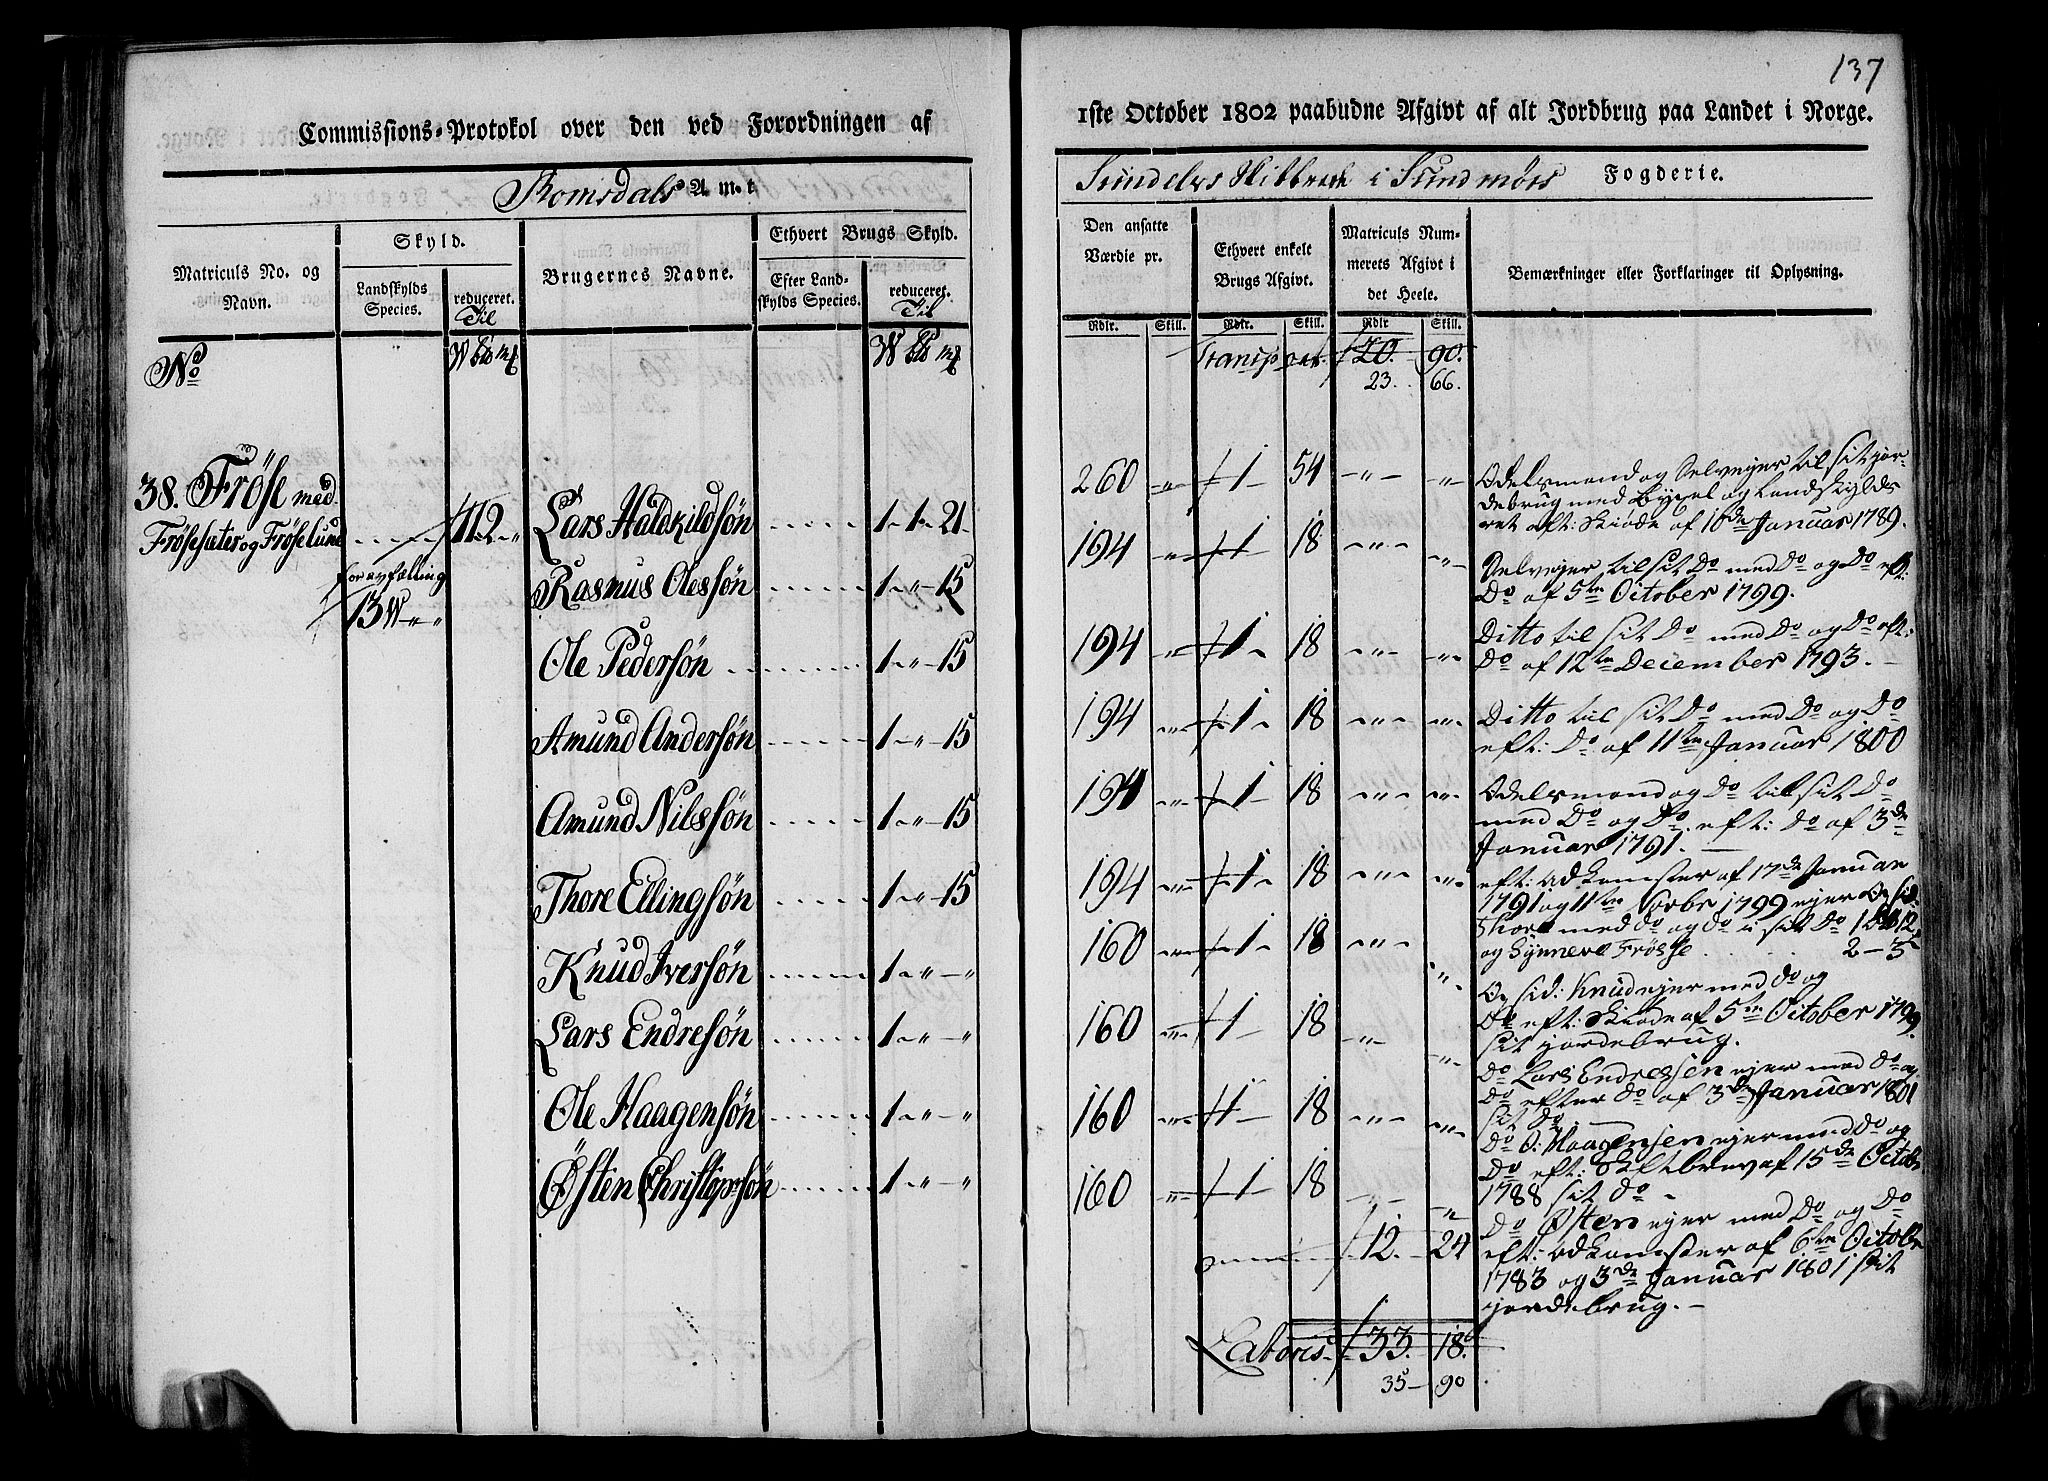 137
Commissions-Protokol over den ved Forordningen af
1ste October 1802 paabudne Afgivt af alt Jordbrug paa Landet i Norge.
Romsdals Amt
Sundelvs Skibbrede i Sundmørs Fogderie.
Matriculs No. og Navn.
Skyld.
Landskylds Species.
reduceret. Til
Brugernes Navne.
Ethvert Brugs Skyld.
Efter Landskylds Species.
reduceret. Til
Den ansatte Værdie pr.
Ethvert enkelt Brugs Afgivt.
Matriculs Nummerets Afgivt i det Heele.
Bemærkninger eller Forklaringer til Oplysning.
Rdlr. Skill. Rdlr. Skill. Rdlr Skill.
No W
Transport 20. 90.
23. 66.
38. Fröse med
Frösesæter og Fröselund 112 "
for avfælling
13 W " "
Lars Haldkildsøn 1 - 1 - 21 260 " 1 54 " "
Rasmus Olessøn 1 - " - 15 194 " 1 18 " "
Ole Pedersøn 1 - " - 15 194 " 1 18 " "
Amund Andersøn 1 - " - 15 194 " 1 18 " "
Amund Nilssøn 1 - " - 15 194 " 1 18 " "
Thore Ellingsøn 1 - " - 15 194 " 1 18 " "
Knud Iversøn 1 - " - " 160 " 1 18 " "
Lars Endresøn 1 - " - " 160 " 1 18 " "
Ole Haagensøn 1 - " - " 160 " 1 18 " "
Østen Christopsøn 1 - " - " 160 " 1 18 " "
12. 24
Lateris 33. 18.
35 - 90
Odelsmand og Selvejer til sit jor-
debrug med Bygsel og Landskylds
ret eft: Skiøde af 10de Januar 1789.
Selvejer til sit Do med Do og Do eft:
Do af 5te October 1799.
Ditto til sit Do med Do og Do eft:
Do af 12te December 1793.
Ditto til sit Do med Do og Do
eft: Do af 11te Januar 1800
Odelsmand og Do til sit Do
med Do og Do. eft: do af 3de
Januar 1791.
eft: adkomster af 17de Januar
1791 og 11te Novbr 1799 ejer Opsid:
Thore med do og do i sit do 1
og Synneve Frösse 2 - 3
Opsid: Knud ejer med do og
Do eft: Skiøde af 5te October 1799.
sit jordebrug.
Do Lars Endresen ejer med do og
do efter do af 3de Januar 1801
sit do
Do O: Haagensen ejer med do og
Do eft: Skiftebrev af 15de Octob
1788 sit do
Do Østen ejer med Do og Do
eft: adkomster af 6te Octobr
1783 og 3de Januar 1801 sit
jordebrug.